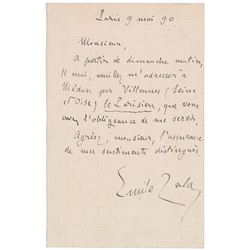 Paris 9 mai 90
Monsieur,
A partir de dimanche matin,
11 mai, veuillez m'adresser à
Médan par Villennes (Seine
et Oise) le Parisien, que vous
avez l'obligeance de me servir.
Agréez, monsieur, l'assurance
de mes sentiments distingués.
Emile Zola